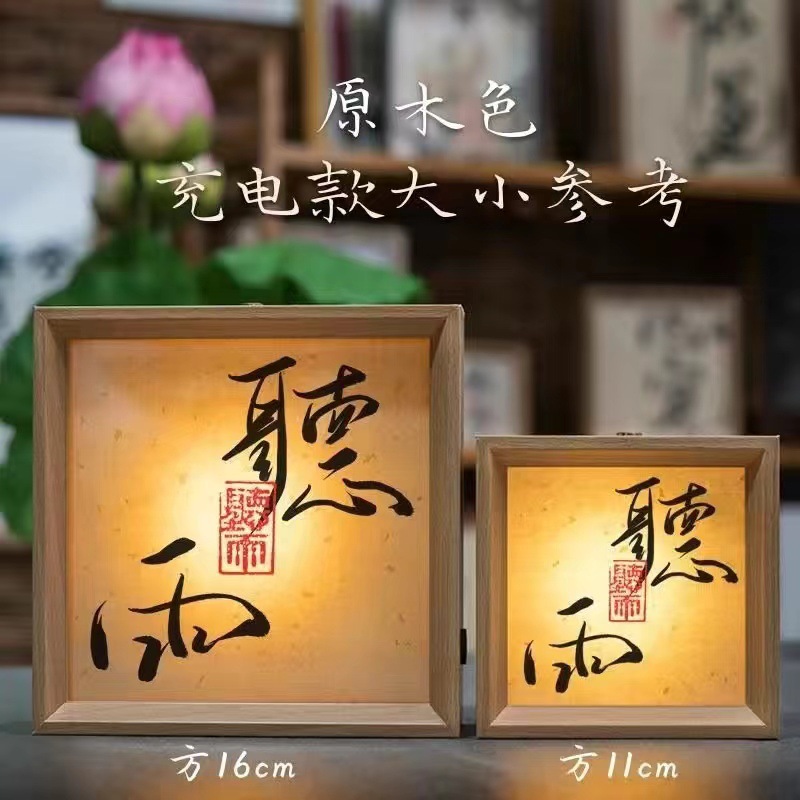 原木色
充电款大小参考
聽雨
聽雨
聽雨
聽雨
方16cm
方11cm